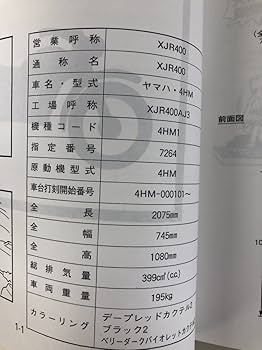 営業呼称 XJR400
通称名 XJR400
車名型式 ヤマハ・4HM
工場呼称 XJR400AJ3
機種コード 4HM1
指定番号 7264
原動機型式 4HM
車台打刻開始番号 4HM-000101～
全長 2075mm
全幅 745mm
全高 1080mm
総排気量 399cm³(c.c.)
車両重量 195kg
カラーリング デープレッドカクテル2
ブラック2
ベリーダークバイオレットカクテル
1-1
前面図